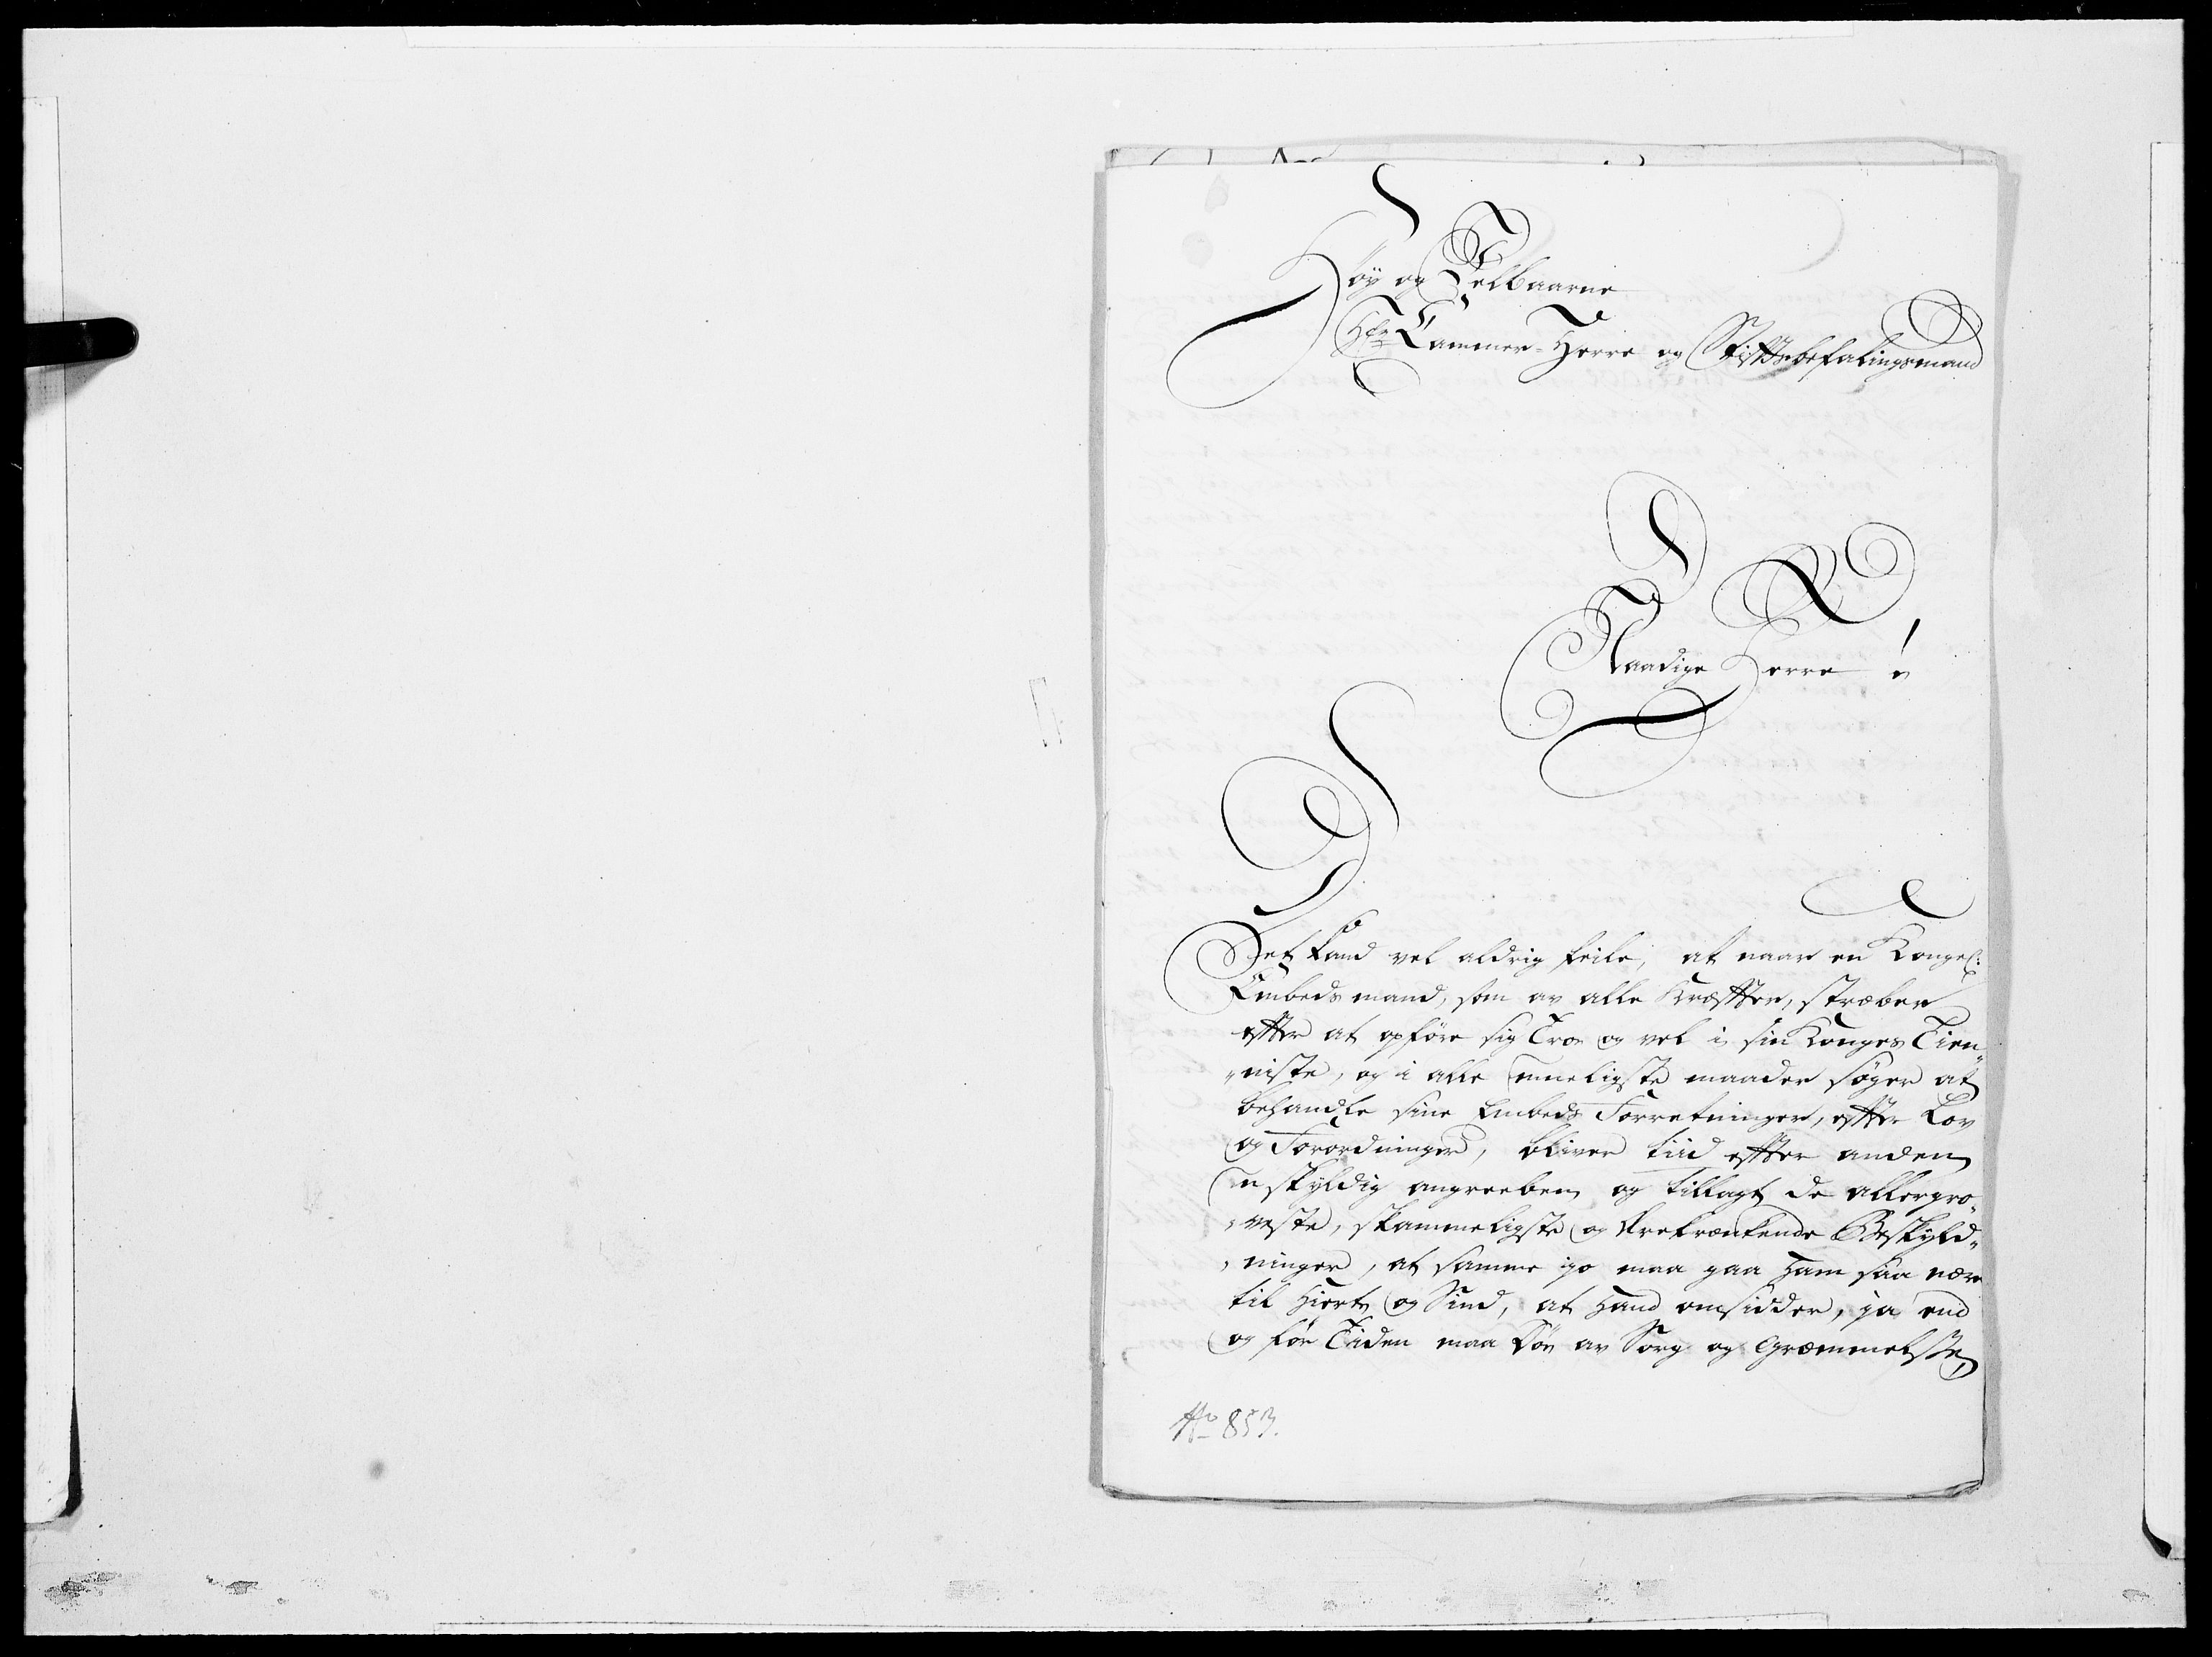 Høy og Velbaarne
Hr Cammer-Herre og Stifftsbefalingsmand
Naadige Herre!
Det kand vel aldrig feile, at naar en Kongel:
Embedsmand, som av alle Kræffter, stræber
effter at opføre sig Troe og vel i sin Konges Tien¬
niste, og i alle mueligste maader søger at
behandle sine Embeds Forretninger, effter Lov
og Forordninger, bliver tiid effter anden
uskyldig angreeben og tillagt de allergro¬
veste, skammeligste og ærekrænkende Beskyld¬
ninger, at samme jo maa gaa ham saa nær
til Hierte og Sind, at hand omsidder, ja end
og før Tiden maa døe av Sorg og Græmmelsse,
No 853.